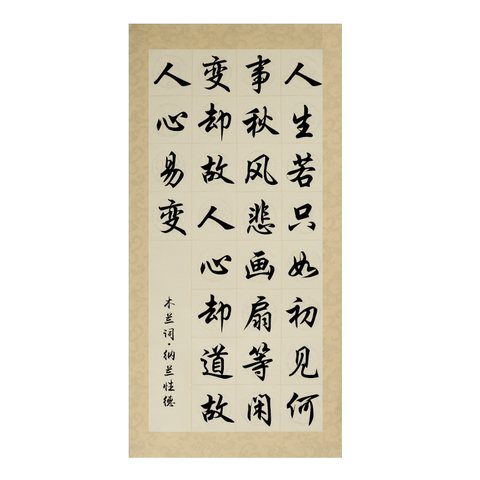 人生若只如初见何
事秋风悲画扇等闲
变却故人心却道故
人心易变
木兰词·纳兰性德